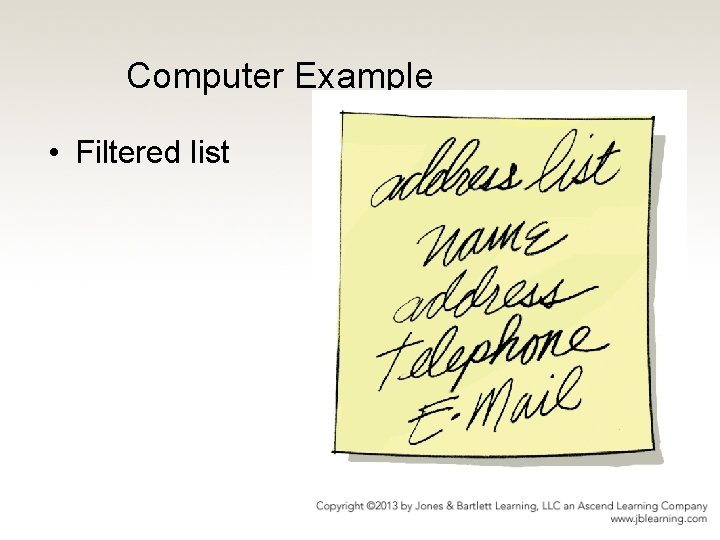 Computer Example
• Filtered list
address list
name
address
telephone
E-Mail
Copyright ©2013 by Jones & Bartlett Learning, LLC an Ascend Learning Company
www.jblearning.com